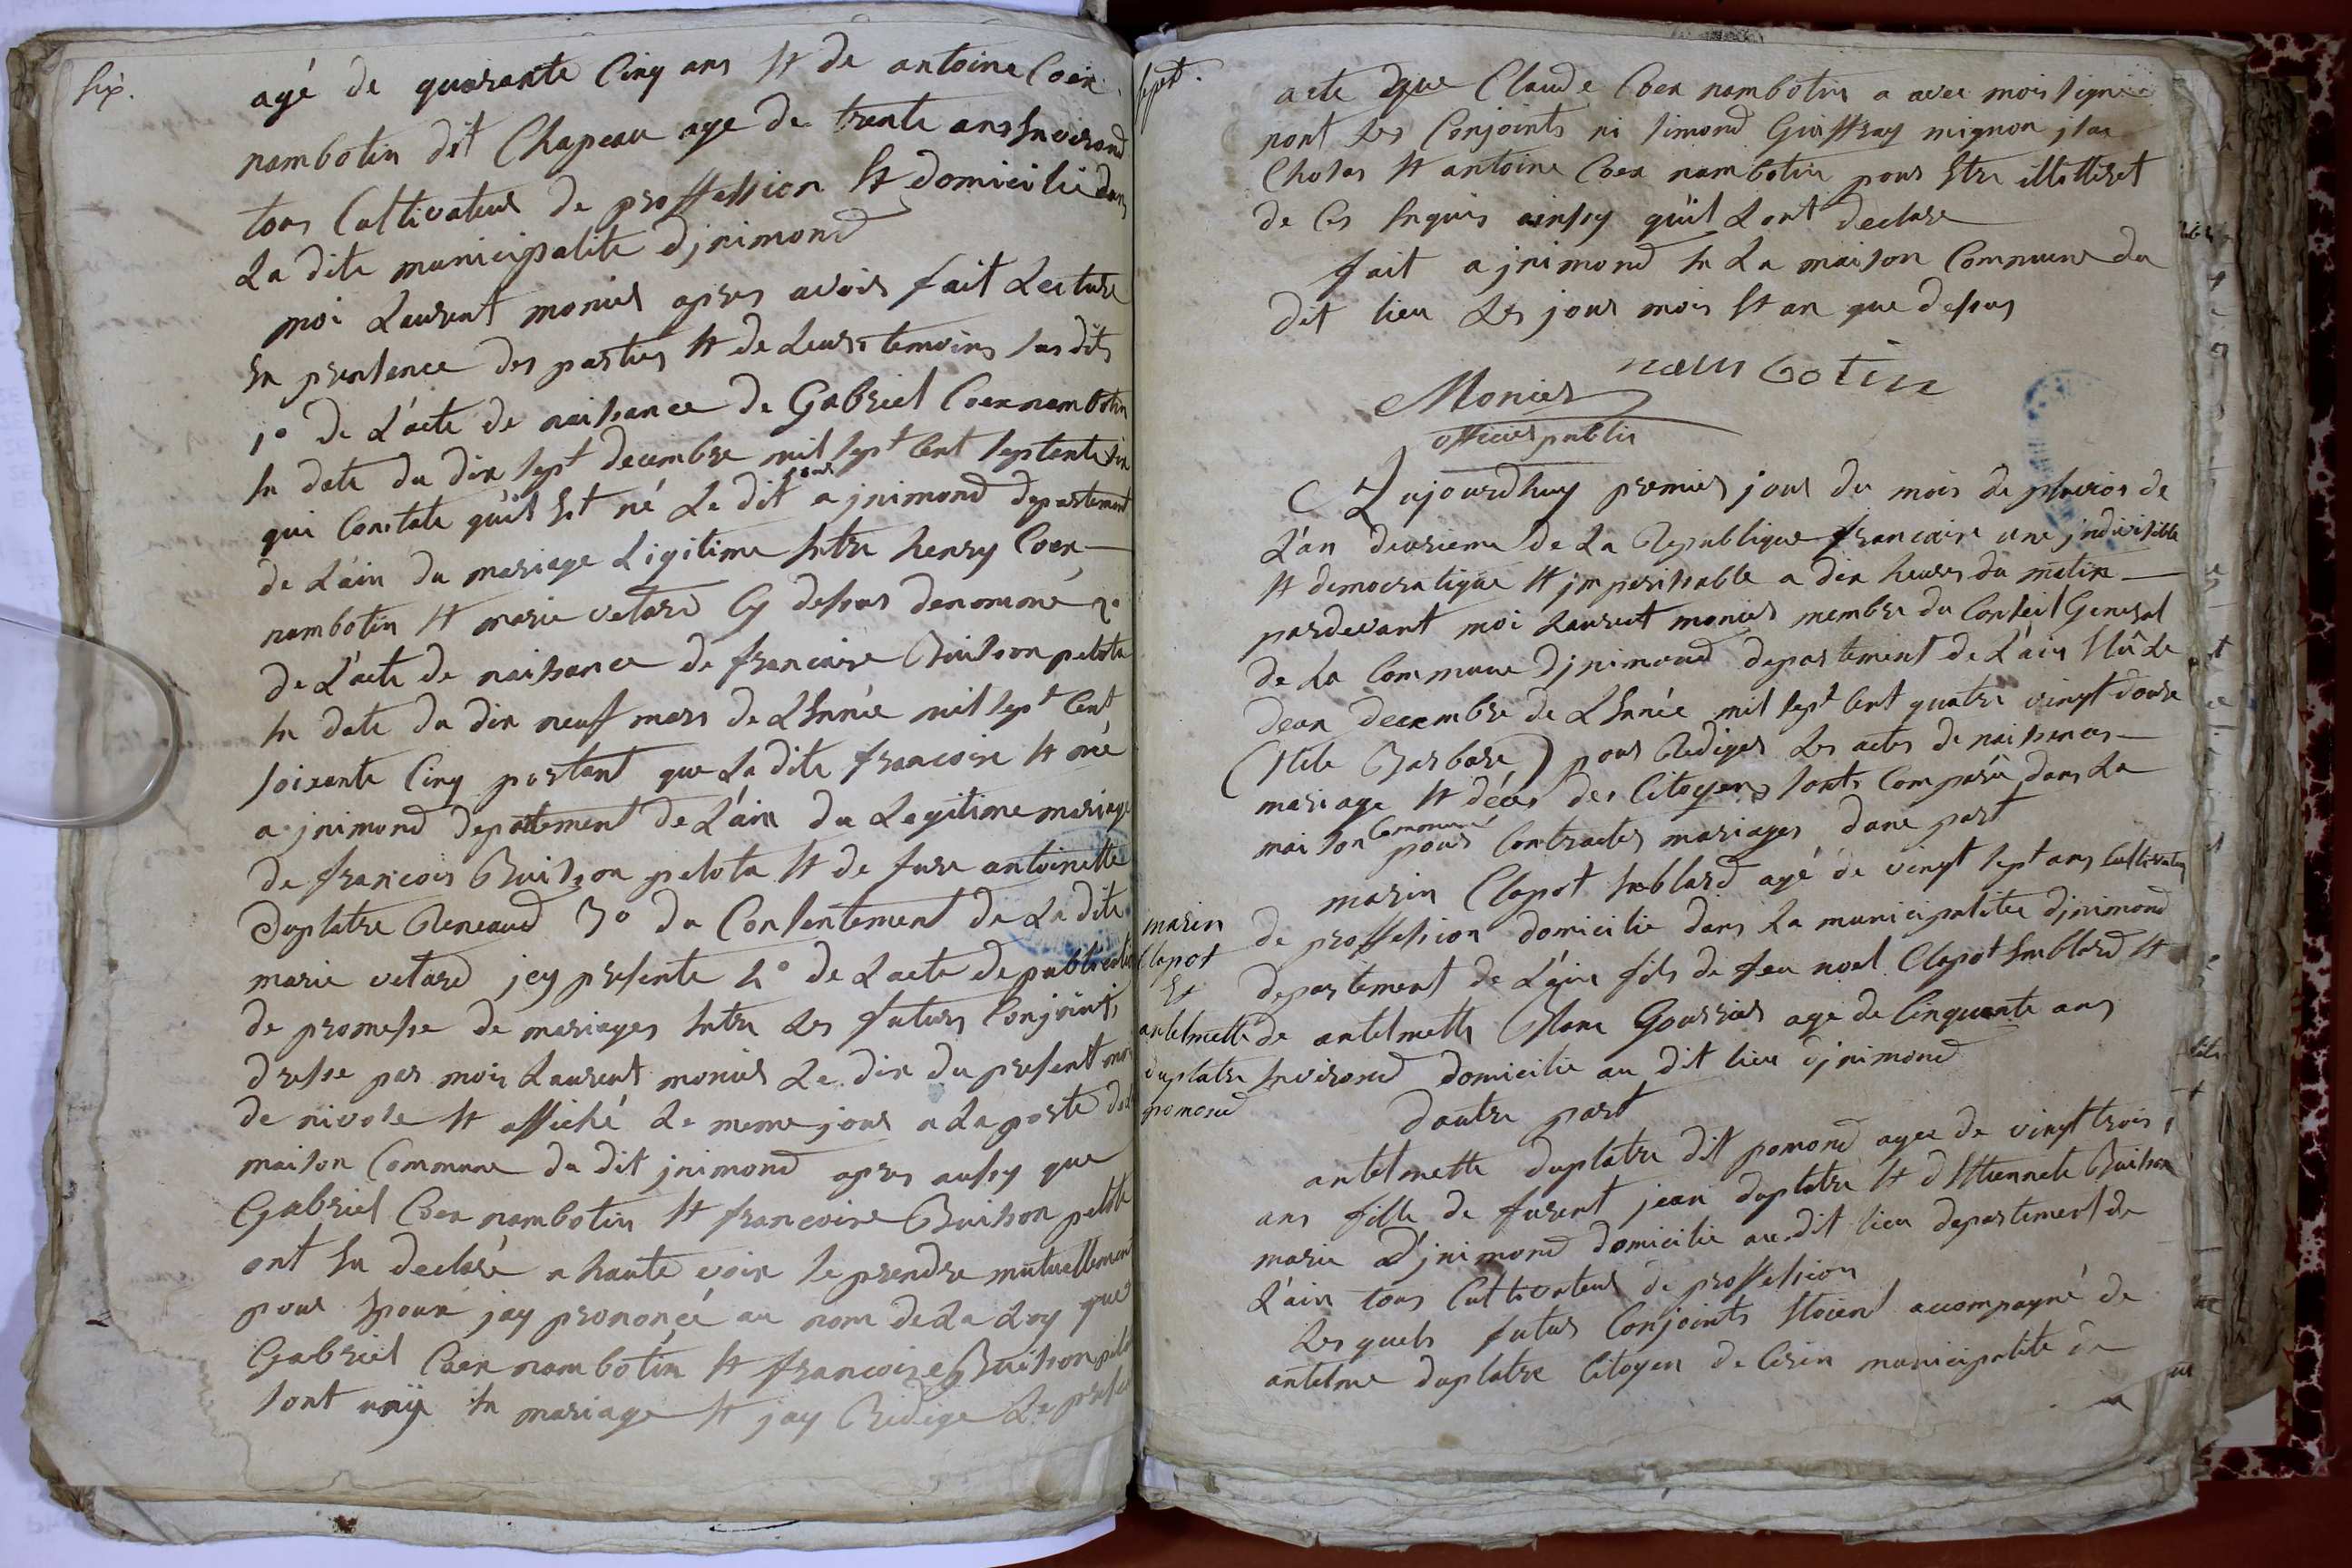 six.
agé de quarante Cinq ans Et de antoine Coex
nambotin dit Chapeau age de trente ans Environd
tous Cultivateur de proffession Et domicilie dans
La dite municipalite djnimond
moi Laurent monier apres avoir fait Lecture
En presence des parties Et de Leurs temoins sus dits
1º de L'acte de naissance de Gabriel Coex nambotin
En date du dix sept decembre mil sept Cent septente six
qui Constate qu'il Est né Le dit jour a jnimond departement
de L'ain du mariage Ligitime Entre henry Coex
nambotin Et marie vetard Cy dessus denommé 2º
de L'acte de naissance de francoise Buisson pelota
En date du dix neuf mars de L'Année mil sept Cent
soixante Cinq portant que La dite francoise Et né
a jnimond departement de L'ain du Legitime mariage
de francois Buisson pelota Et de fure antoinette
Duplatre Reneaud 3º du Consentement de La dite
marie vetard jcy presente 4º de L'acte de publication
de promesse de mariages Entre Les futurs Conjoints
dresse par mois Laurent monier Le dix du present mois
de nivose Et affiché Le meme jour a La porte de la
maison Commune du dit jnimond apres aussy que
Gabriel Coex nambotin Et francoise Buisson pelota
ont Eu declaré a haute voix se prendre mutuellement
pour Epoux jay prononcé au nom de La Loy que
Gabriel Coex nambotin Et francoise Buisson pelota
sont unij En mariage Et jay Redige Le present
sept.
acte que Claude Coex nambotin a avec mois signé
nont Les Conjoints ni simond Guiffray mignon
Et antoine Coex nambotin pour Etre illettiret
de Ces Enquis ainssy qu'il Lont declare
fait a jnimond En La maison Commune du
dit lieu Les jour mois Et an que dessus
nambotin
Monier
officier public
Aujourdhuy premier jour du mois de pluvios de
L'an deuxieme de La Republique francaise une jndivisible
Et democratique Et jmperissable a dix heures du matin
pardevant moi Laurent monier membre du Conseil General
de La Commune Djnimond departement de L'ain Elû Le
deux decembre de L'Année mil sept Cent quatre vingt douze
(stile Barbare) pour Rediger Les actes de naissences
mariage Et déces des Citoyens sonts Comparû dans La
maison Commune pour Contracter mariages dune part
marin Clapot Emblard agé de vingt sept ans Cultivateur
de proffession domicilie dans La municipalitee djnimond
departement de L'ain fils de feu noel Clapot Emblard Et
de antelmette Blanc Goursier age de Cinquante ans
Environd domicilie au dit lieu djnimond
marin
Clapot
Et
antelmette
duplatre
pomond
dautre part
antelmette duplatre dit pomond agee de vingt trois
ans fille de furent jean duplatre Et d'Etiennete Buisson
marie d'jnimond domicilie audit lieu departement de
L'ain tous Cultivateur de proffession
Les quels futur Conjoints Etoient accompagné de
antelme duplatre Citoyen de Cerin municipalite de